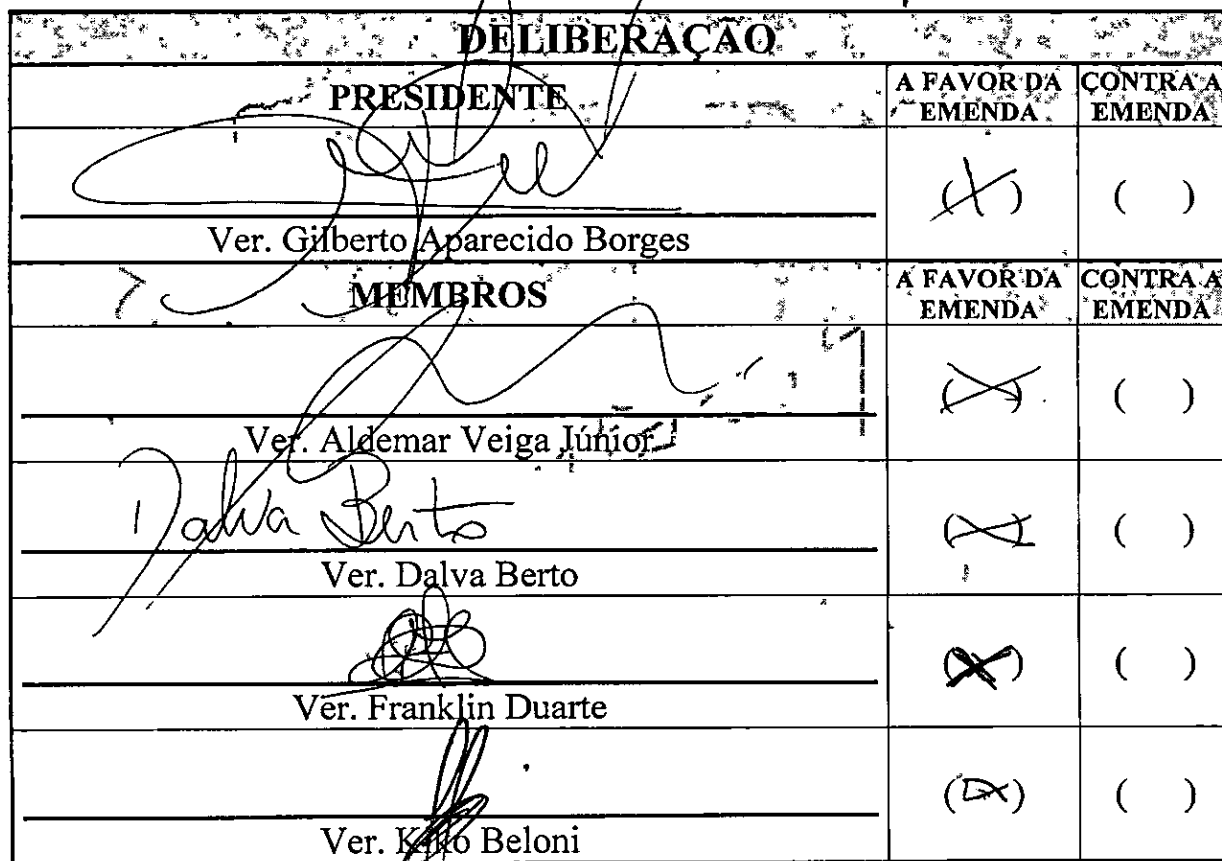 DELIBERAÇÃO
PRESIDENTE
A FAVOR DA EMENDA
CONTRA A EMENDA
(X)
( )
Ver. Gilberto Aparecido Borges
MEMBROS
A FAVOR DA EMENDA
CONTRA A EMENDA
(X)
( )
Ver. Aldemar Veiga Júnior
Dalva Berto
(X)
( )
Ver. Dalva Berto
(X)
( )
Ver. Franklin Duarte
(X)
( )
Ver. Beloni